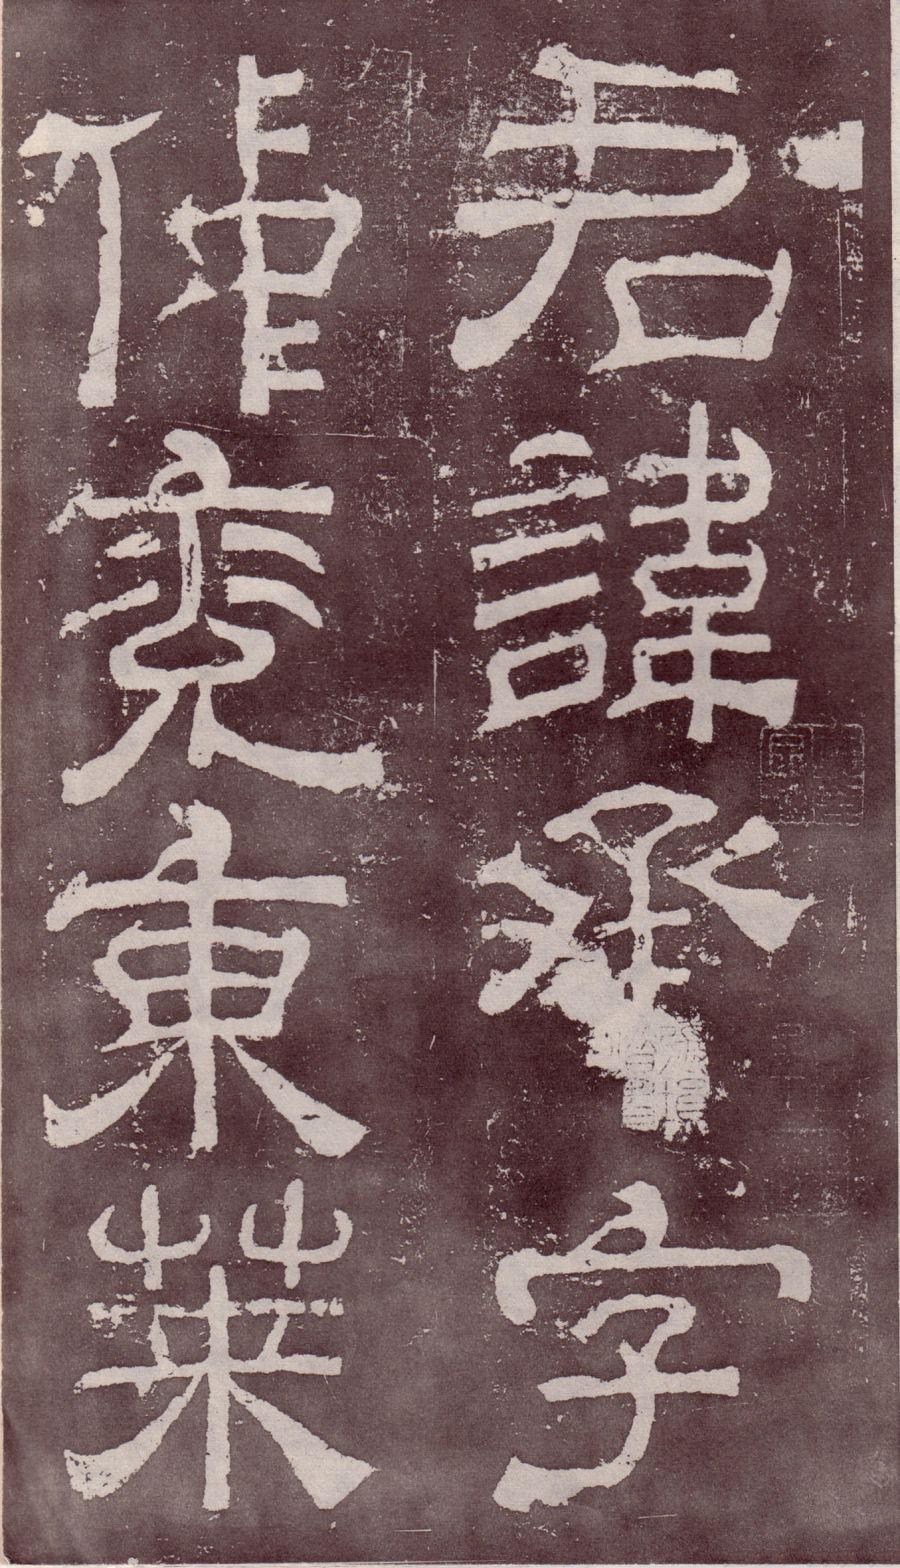 君諱承字
仲兗東萊